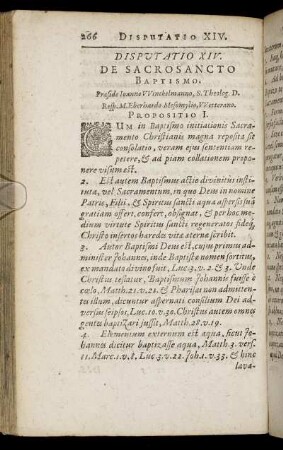 266 DISPUTATIO XIV.
DISPUTATIO XIV.
DE SACROSANCTO
BAPTISMO,
Præside Ioanne VVinckelmanno, S. Theolog. D.
Resp. M. Eberhardo Mesomylio, VVetterano.
PROPOSITIO I.
CUM in Baptismo initiationis Sacra-
mento Christianis magna reposita sit
consolatio, veram ejus sententiam re-
petere, & ad piam collationem propo-
nere visum est.
2. Est autem Baptismus actio divinitus insti-
tuta, vel Sacramentum, in quo Deus in nomine
Patris, Filii, & Spiritus sancti aqua aspersis suã
gratiam offert, confert, obsignat, & per hoc me-
dium virtute Spiritus sancti regeneratos fideq́;
Christo insertos hæredes vitæ æternæ scribit.
3. Autor Baptismi Deus est, cujus primus ad-
minister Johannes, unde Baptistæ nomen sortitur,
ex mandato divino fuit, Luc. 3. v. 2. & 3. Unde
Christus testatur, Baptismum Johannis fuisse è
cœlo, Matth. 21. v. 25. & Pharisæi non admitten-
tes illum, dicuntur aspernati consilium Dei ad-
versus seipsos, Luc. 7. v. 30. Christus autem omnes
gentes baptizari jussit, Matth. 28. v. 19.
4. Elementum externum est aqua, sicut Jo-
hannes dicitur baptizasse aqua, Matth. 3. vers.
11. Marc. 1. v. 8. Luc. 3. v. 22. Joha. 1. v. 33. & hinc
lava-